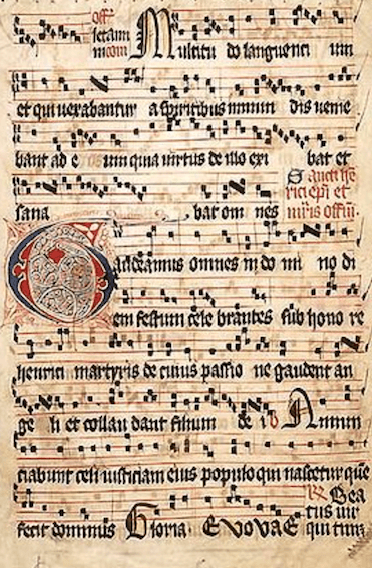 off
letam
Multitu do languenti um
et qui vexabantur a spiritibus inmun dis venie
bant ad e um quia virtus de illo exi bat et
sana bat om nes
Sancti he
rici epi et
mris offm
Gaudeamus omnes in do mi no di
em festum cele brantes sub hono re
henrici martyris de cuius passio ne gaudent an
ge li et collau dant filium de i Annun
ciabunt celi iusticiam eius populo qui nascetur que
fecit dominus Gloria. Evovae
Bea
tus vir
qui tim